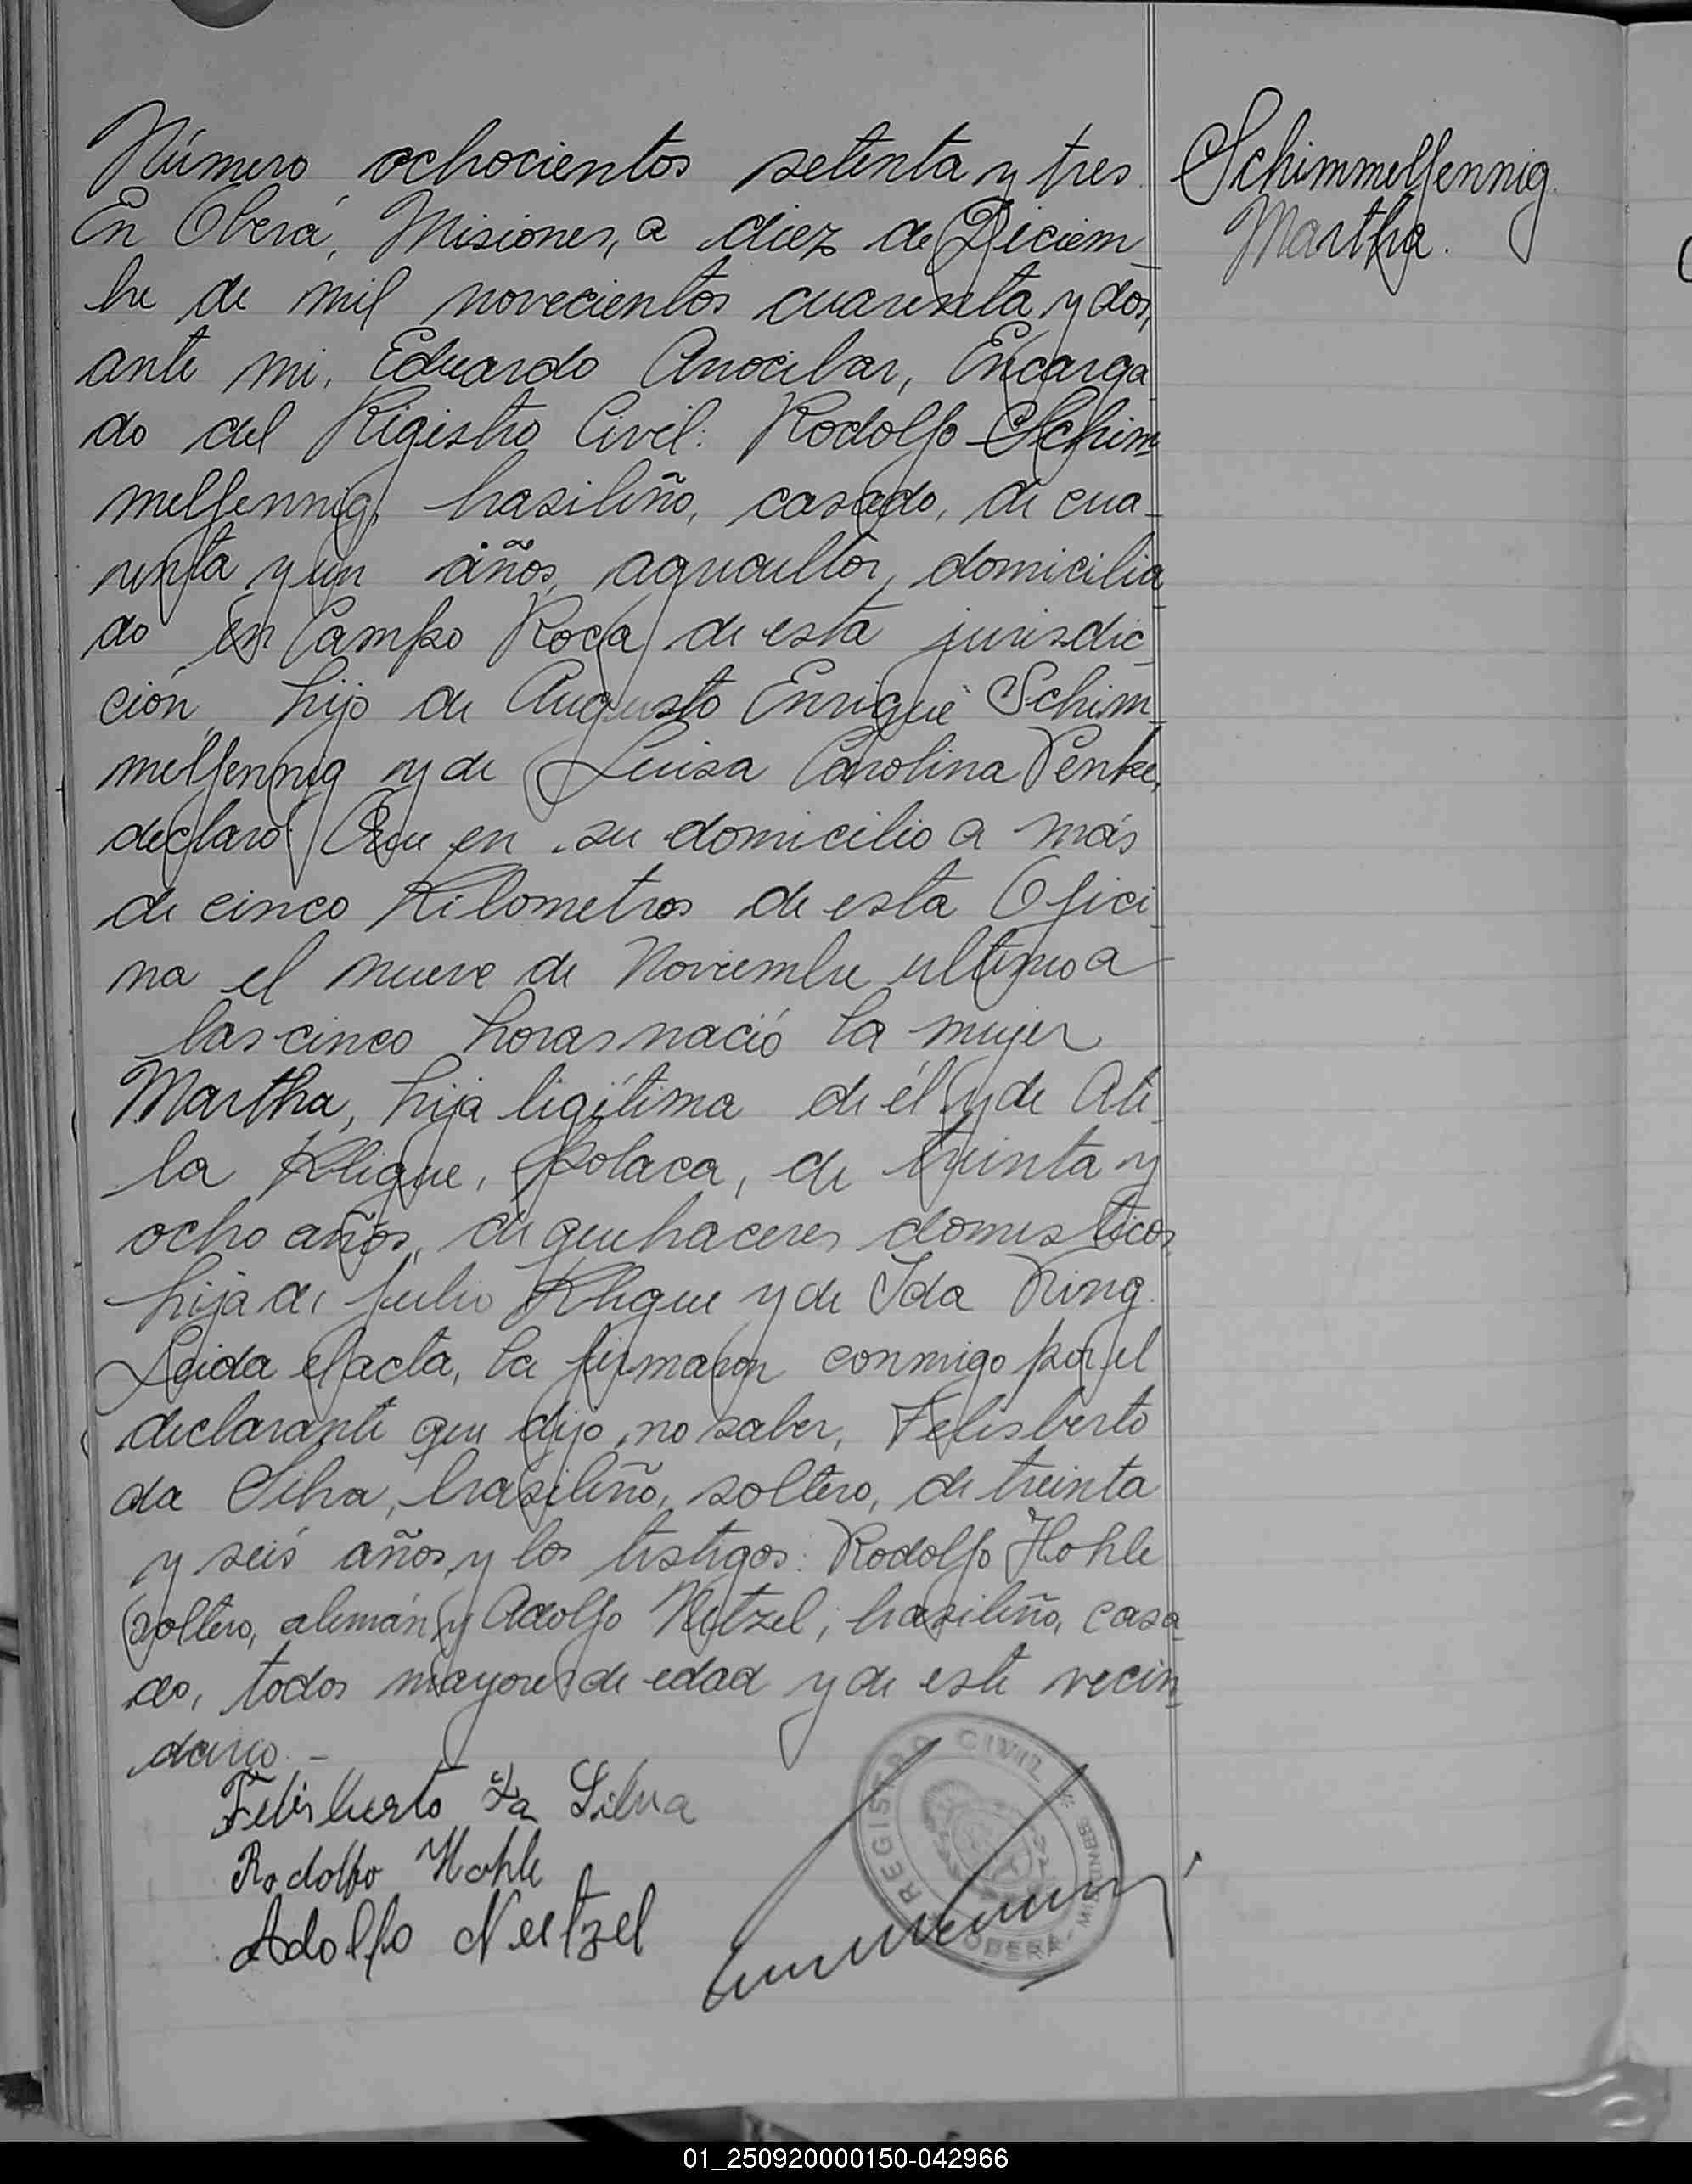 Número ochocientos setenta y tres
Schimmelfennig
Martha.
En Oberá, Misiones, a diez de Diciem_
bre de mil novecientos cuarenta y dos,
ante mi, Eduardo Anocibar, Encarga_
do del Registro Civil: Rodolfo Schim_
melfennig, brasileño, casado, de cua_
renta y un años, agricultor, domicilia_
do en Campo Roca de esta jurisdic_
ción, hijo de Augusto Enrique Schim_
melfennig y de Luisa Carolina Penke,
declaró: Que en su domicilio a más
de cinco Kilometros de esta Ofici_
na el nueve de Noviembre ultimo a
las cinco horas nació la mujer
Martha, hija legítima de él y de Ati_
la Kligue, polaca, de treinta y
ocho años, de quehaceres domesticos,
hija de Julio Kligue y de Ida King.
Leida el acta, la firmaron conmigo por el
declarante que dijo no saber, Felisberto
da Silva, brasileño, soltero, de treinta
y seis años y los testigos: Rodolfo Hohle
soltero, alemán y Adolfo Netzel, brasileño, casa_
do, todos mayores de edad y de este vecin_
dario.-
Felisberto Da Silva
Rodolfo Hohle
Adolfo Neetzel
REGISTRO CIVIL
OBERA - MISIONES
01_250920000150-042966